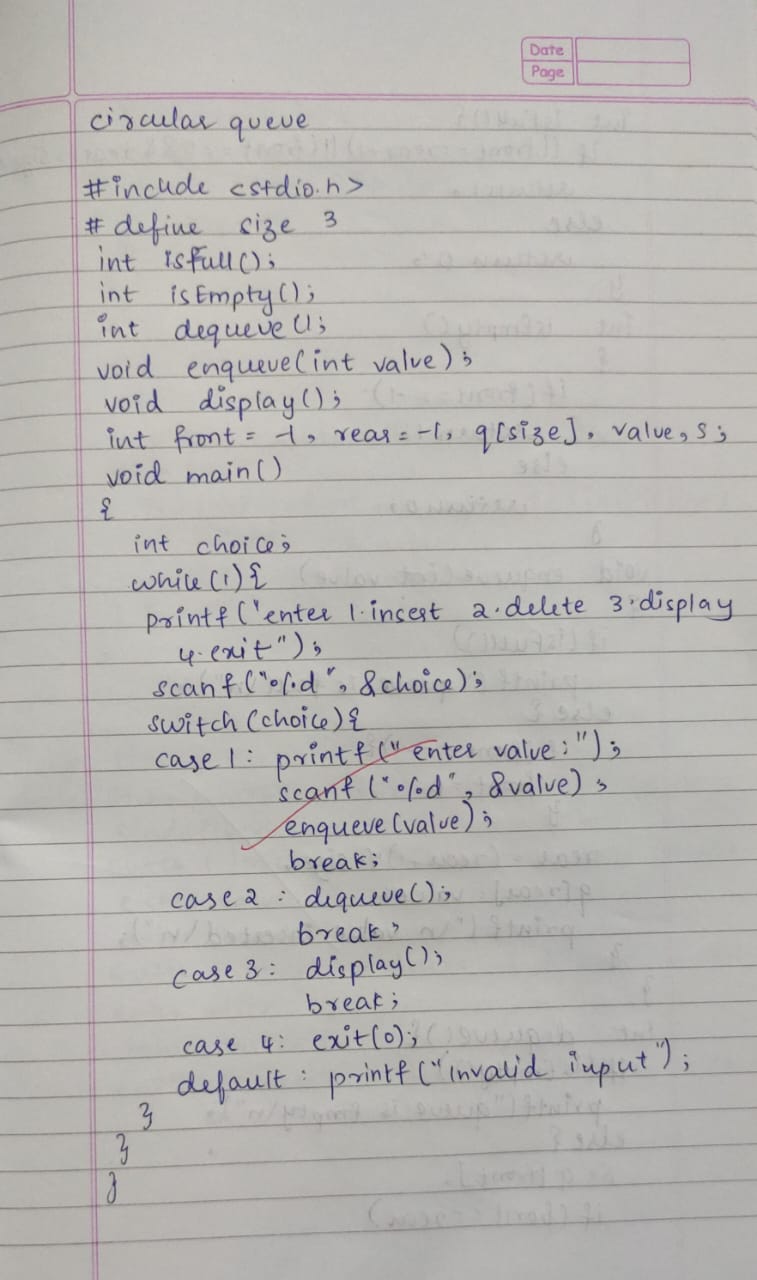 Date
Page
circular queue
#include <stdio.h>
# define size 3
int isfull();
int isEmpty();
int dequeue();
void enqueue(int value);
void display();
int front = -1, rear = -1, q[size], value, s;
void main()
{
int choice;
while(1){
printf("enter 1.insert 2.delete 3.display
4.exit");
scanf("%d", &choice);
switch(choice){
case 1: printf("enter value:");
scanf("%d", &value);
enqueue(value);
break;
case 2 : dequeue();
break;
case 3: display();
break;
case 4: exit(0);
default : printf("invalid input");
}
}
}